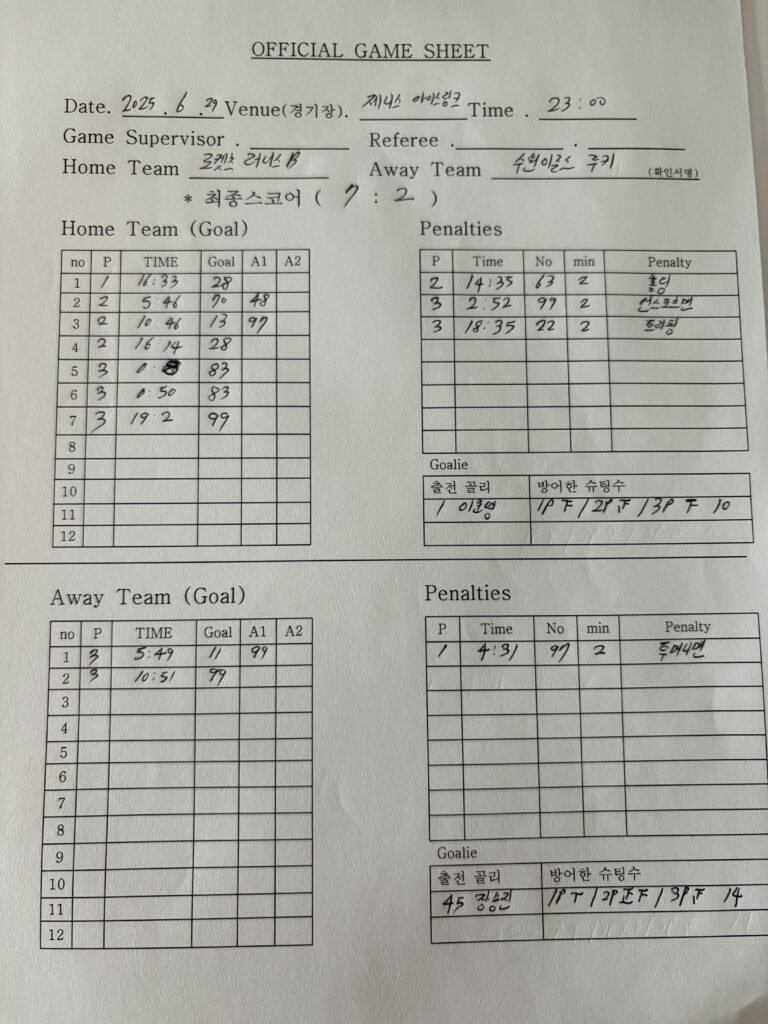 OFFICIAL GAME SHEET
Date. 2025 . 6 . 29 Venue(경기장). 제니스 아이스링크 Time . 23:00
Game Supervisor . Referee . .
Home Team 로켓츠 러너스 B Away Team 수원이글스 루키 (확인서명)
* 최종스코어 ( 7 : 2 )
Home Team (Goal) Penalties
no P TIME Goal A1 A2
1 1 16:33 28
2 2 5:46 70 48
3 2 10:46 13 97
4 2 16:14 28
5 3 0:8 83
6 3 0:50 83
7 3 19:2 99
8
9
10
11
12
P Time No min Penalty
2 14:35 63 2 홀딩
3 2:52 99 2 언스포츠맨
3 18:35 22 2 트리핑
Goalie
출전 골리 방어한 슈팅수
1 1P / 2P / 3P 10
Away Team (Goal) Penalties
no P TIME Goal A1 A2
1 3 5:49 11 99
2 3 10:51 99
3
4
5
6
7
8
9
10
11
12
P Time No min Penalty
1 4:31 97 2 투머니맨
Goalie
출전 골리 방어한 슈팅수
45 장승린 1P / 2P / 3P 14